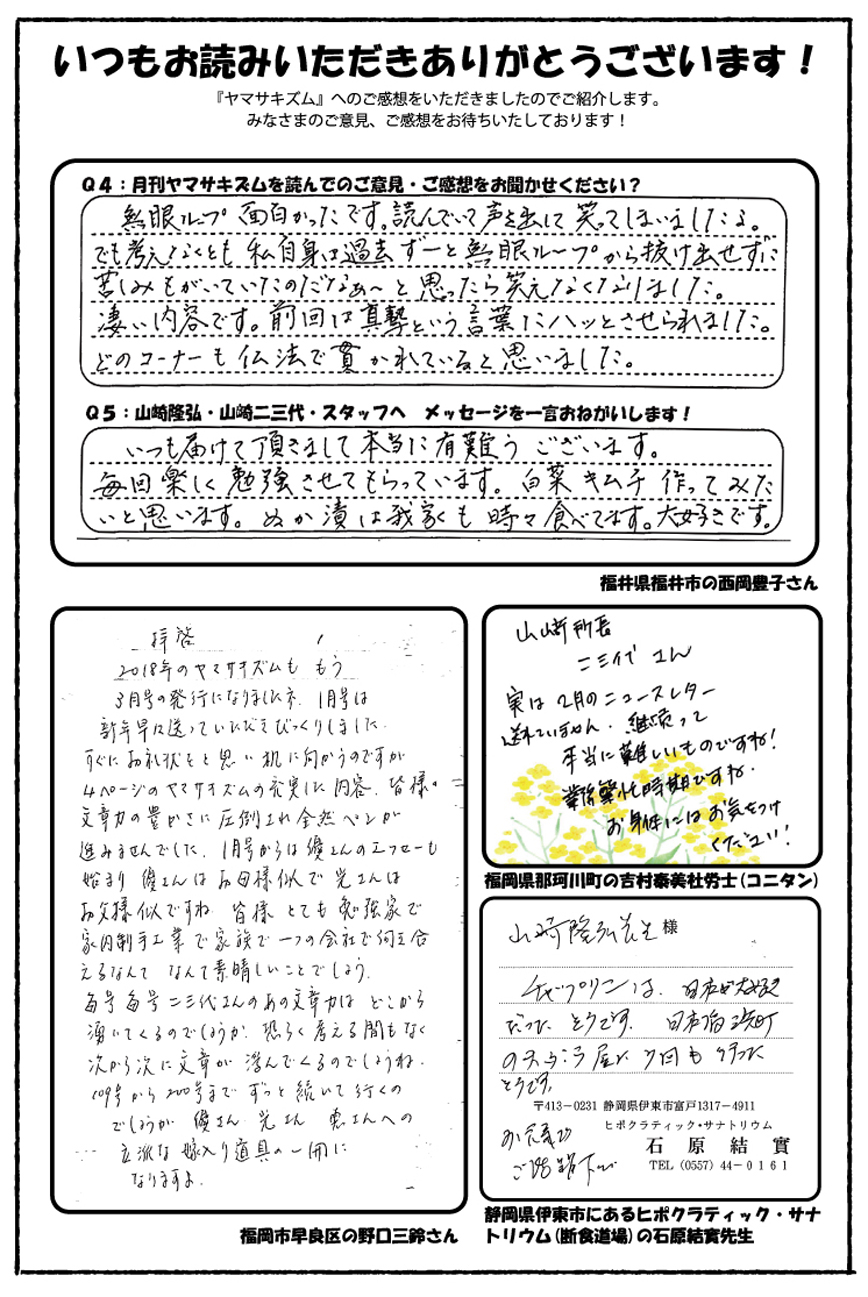 いつもお読みいただきありがとうございます！
『ヤマサキズム』へのご感想をいただきましたのでご紹介します。
みなさまのご意見、ご感想をお待ちいたしております！
Q4：月刊ヤマサキズムを読んでのご意見・ご感想をお聞かせください？
無眼ループ 面白かったです。読んでいて声を出して笑ってしまいました。
でも考えなくとも私自身は過去ずーと無眼ループから抜け出せずに
苦しみもがいていたのだなぁ～と思ったら笑えなくなりました。
凄い内容です。前回は真摯という言葉にハッとさせられました。
どのコーナーも仏法で貫かれていると思いました。
Q5：山﨑隆弘・山﨑二三代・スタッフへ　メッセージを一言おねがいします！
いつも届けて頂きまして本当に有難うございます。
毎回楽しく勉強させてもらっています。白菜キムチ作ってみた
いと思います。ぬか漬は我家も時々食べてます。大好きです。
福井県福井市の西岡豊子さん
拝啓
2018年のヤマサキズムも もう
3月号の発行になりましたネ. 1月号は
新年早に送っていただきびっくりしました.
すぐにお礼状をと思い机に向かうのですが
4ページのヤマサキズムの充実した内容. 皆様の
文章力の豊かさに圧倒され全然ペンが
進みませんでした. 1月号からは優さんのエッセーも
始まり 優さんはお母様似で 光さんは
お父様似ですね. 皆様 とても勉強家で
家内制手工業で家族で一つの会社で何え合
えるなんて なんて素晴しいことでしょう.
毎号毎号二三代さんのあの文章力は どこから
湧いてくるのでしょうか. 恐らく考える間もなく
次から次に文章が 浮んでくるのでしょうね.
109号から200号まで ずっと続いて行くの
でしょうが 優さん 光さん 恵さんへの
立派な嫁入り道具の一冊に
なりますよ.
福岡市早良区の野口三鈴さん
山﨑所長
二三代さん
実は2月のニュースレター
送れていません. 継続って
本当に難しいものですね！
業務繁忙時期ですね.
お身体にはお気をつけ
ください！
福岡県那珂川町の吉村泰美社労士（コニタン）
山﨑隆弘先生様
チャップリンは、日本が大好き
だったそうです. 日本橋浜町
の天ぷら屋に 何回も行った
とうです.
〒413−0231 静岡県伊東市富戸1317−4911
ヒポクラティック・サナトリウム
石原結實
TEL (0557) 44−0161
静岡県伊東市にあるヒポクラティック・サナ
トリウム（断食道場）の石原結實先生